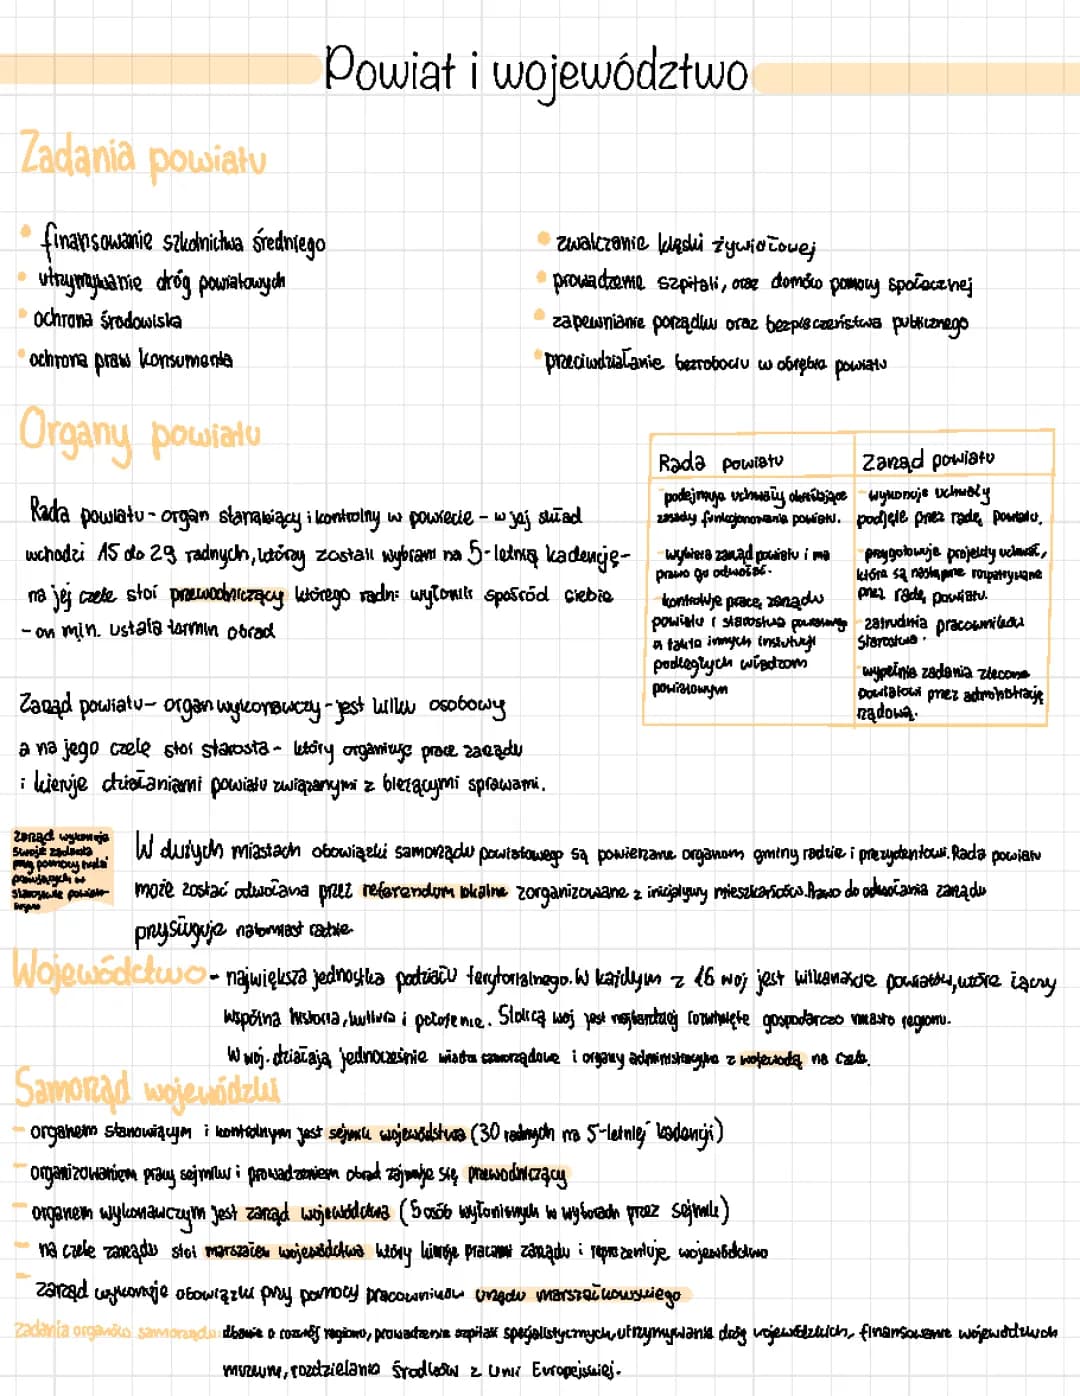 Powiat i województwo
Zadania powiatu
finansowanie szkolnictwa średniego
utrzymywanie dróg powiatowych
ochrona środowiska
ochrona praw konsumenta
zwalczanie klęski żywiołowej
prowadzenie szpitali, oraz domów pomocy społecznej
zapewnianie porządku oraz bezpieczeństwa publicznego
przeciwdziałanie bezrobociu w obrębie powiatu
Organy powiatu
Rada powiatu - organ stanowiący i kontrolny w powiecie - w jej skład
wchodzi 15 do 29 radnych, którzy zostali wybrani na 5-letnią kadencję -
na jej czele stoi przewodniczący którego radni wyłonili spośród siebie
- on min. ustala termin obrad
Rada powiatu
podejmuje uchwały określające
zasady funkcjonowania powiatu.
- wybiera zarząd powiatu i ma
prawo go odwołać.
kontroluje pracę zarządu
powiatu i starostwa powiatowego
a także innych instytucji
podległych władzom
powiatowym
Zarząd powiatu
- wykonuje uchwały
podjęte przez radę powiatu.
- przygotowuje projekty uchwał,
które są następnie rozpatrywane
przez radę powiatu.
- zatrudnia pracowników
starostwa.
wypełnia zadania zlecone
powiatowi przez administrację
rządową.
Zarząd powiatu - organ wykonawczy - jest kilku osobowy
a na jego czele stoi starosta - który organizuje prace zarządu
i kieruje działaniami powiatu związanymi z bieżącymi sprawami.
Zarząd wykonuje
swoje zadania
przy pomocy
w
starostwie
W dużych miastach obowiązki samorządu powiatowego są powierzane organom gminy radzie i prezydentowi. Rada powiatu
może zostać odwołana przez referendum lokalne zorganizowane z inicjatywy mieszkańców. Prawo do odwołania zarządu
przysługuje natomiast radzie
Województwo - największa jednostka podziału terytorialnego. W każdym z 16 woj jest kilkanaście powiatów, które łączy
wspólna historia, kultura i położenie. Stolicą woj jest najbardziej rozwinięte gospodarczo miasto regionu.
W woj. działają jednocześnie władze samorządowe i organy administracyjne z wojewodą na czele.
Samorząd wojewódzki
- organem stanowiącym i kontrolnym jest sejmik województwa (30 radnych na 5-letniej kadencji)
- organizowaniem pracy sejmiku i prowadzeniem obrad zajmuje się przewodniczący
- organem wykonawczym jest zarząd województwa (5 osób wyłonionych w wyborach przez sejmik)
- na czele zarządu stoi marszałek województwa który kieruje pracami zarządu i reprezentuje województwo
- zarząd wykonuje obowiązki przy pomocy pracowników urzędu marszałkowskiego
Zadania organów samorządu: dbanie o rozwój regionu, prowadzenie szpitali specjalistycznych, utrzymywanie dróg wojewódzkich, finansowanie wojewódzkich
muzeum, rozdzielanie środków z Unii Europejskiej.